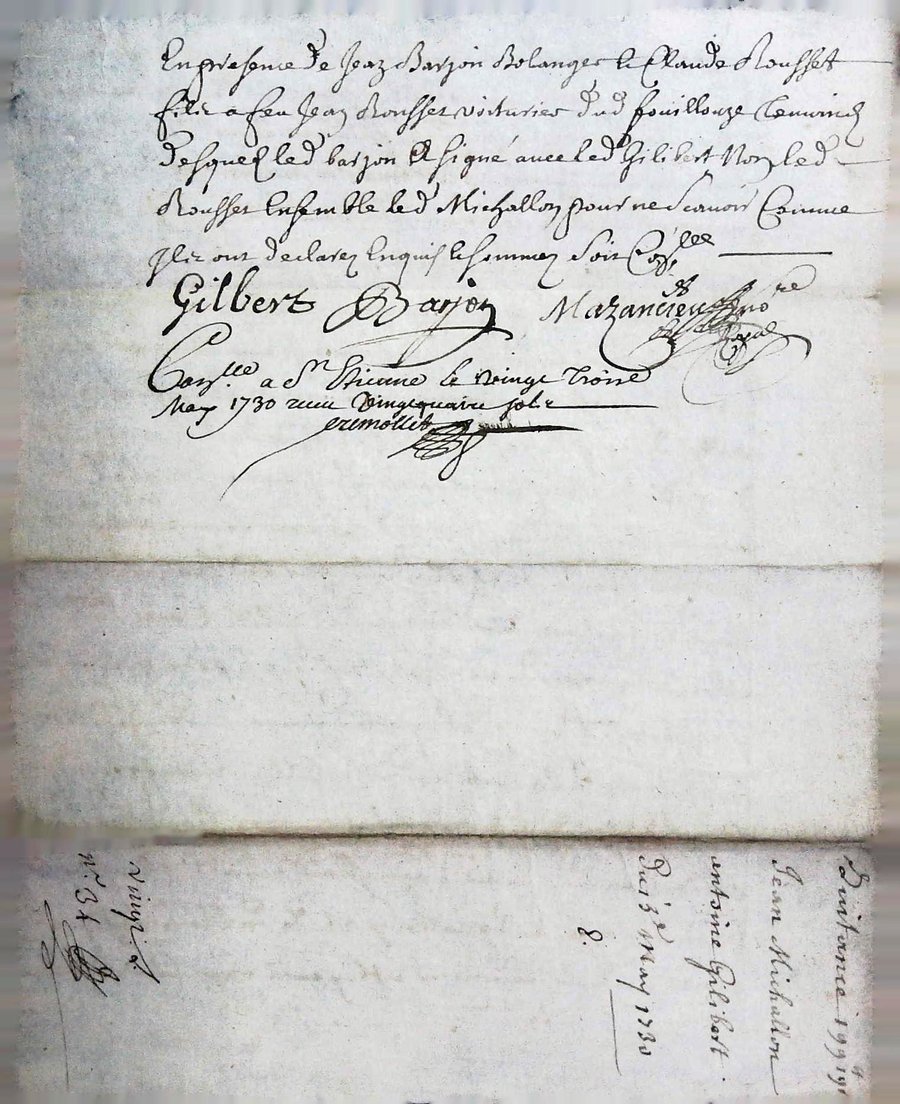 En presence de Jean Barjon Bolanger & Claude Rousset
filz a feu Jean Rousset voiturier dud fouillouze temoins
desquelz led barjon A signé avec led Gilibert Non led
Rousset Ensemble led Michallon pour ne Scavoir Comme
Ilz ont declarez Enquis & sommez Soit
Gilbert Barjon Mazancieu no re
Royal
a St Etienne le vingt Troise
May 1730 receu vingt quatre solz
Quitance
Jean Michallon
antoine Gilibert
Du 13e May 1730
8.
n° 34